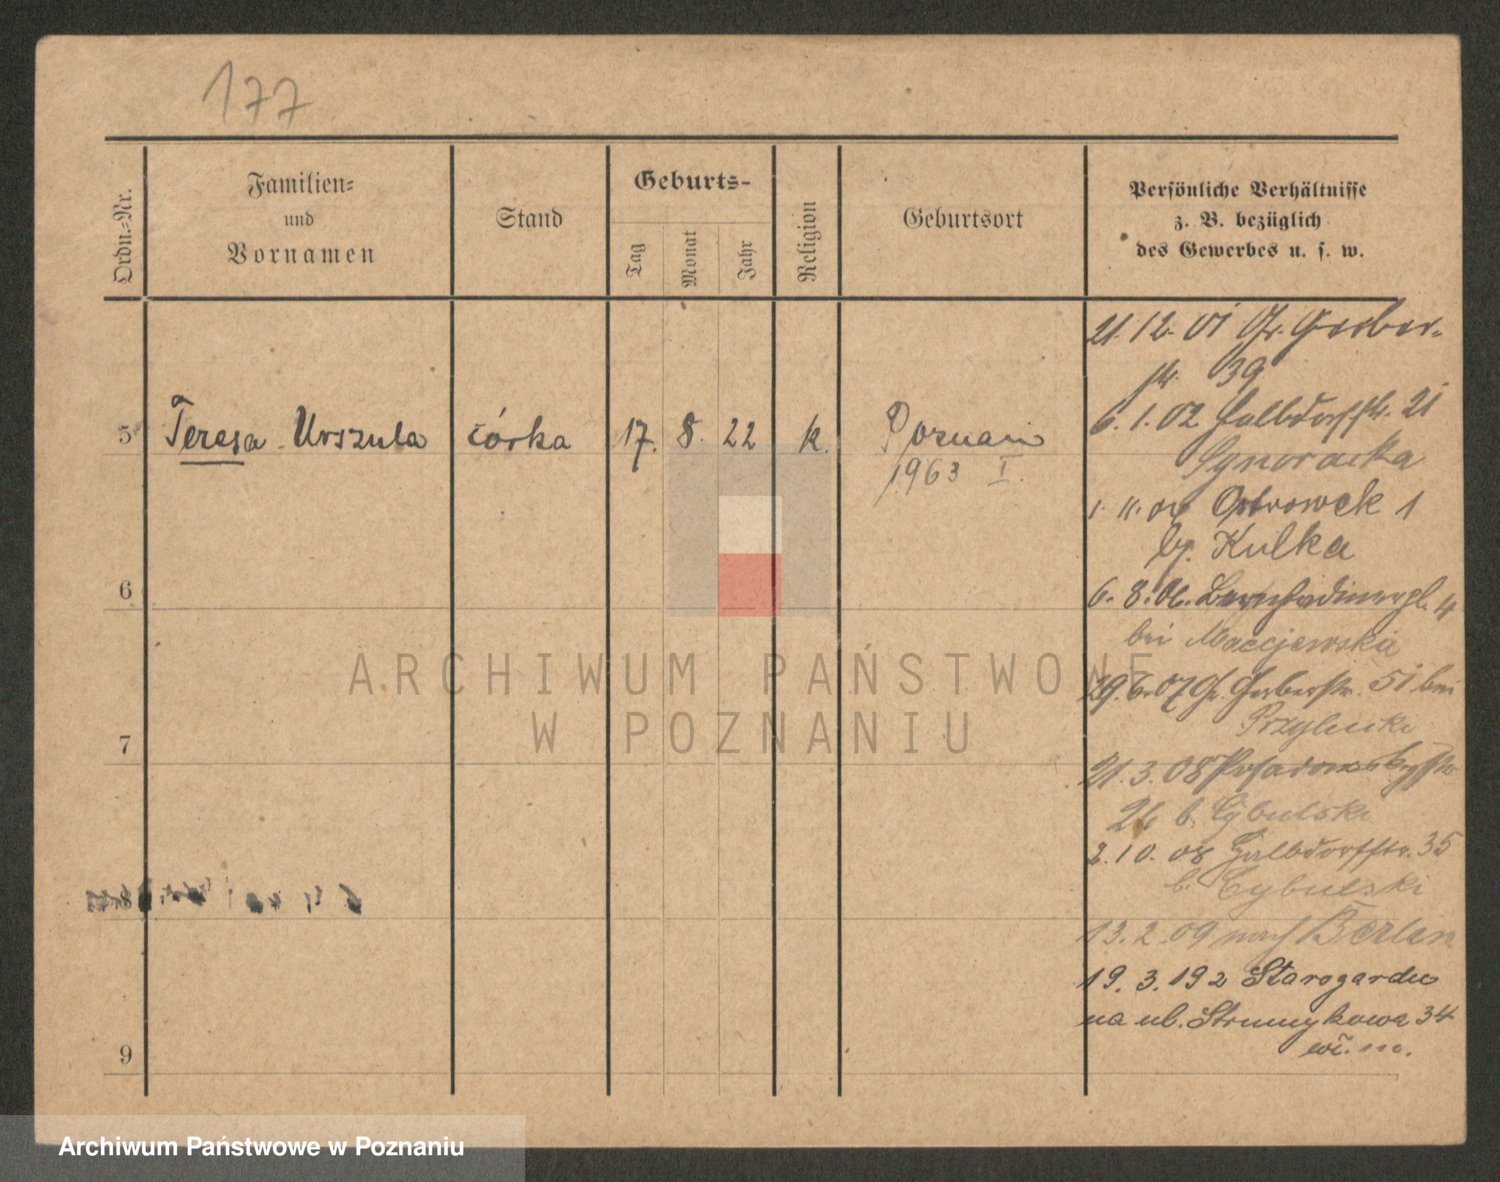 177
Ordn.-Nr.
Familien-
und
Vornamen
Stand
Geburts-
Tag
Monat
Jahr
Religion
Geburtsort
Persönliche Verhältnisse
z. B. bezüglich
des Gewerbes u. s. w.
5 Teresa Urszula córka 17. 8. 22 k. Poznań
1963 I.
6
7
8
9
21. 12. 01 Gr. Gerber-
str. 39
6. 1. 02 Halbdorfstr. 21
Ostrowek 1
by. Kulka
6. 8. 06. Bernhardinerpl. 4
bei Maciejewska
29. 6. 07 Gr. Gerberstr. 51 bei
21. 3. 08
26 b. Cybulski
2. 10. 08 Halbdorfstr. 35
b. Cybulski
13. 2. 09 nach Berlin
19. 3. 192 Starogardu
na ul. Strumykowa 34
ARCHIWUM PAŃSTWOWE
W POZNANIU
Archiwum Państwowe w Poznaniu